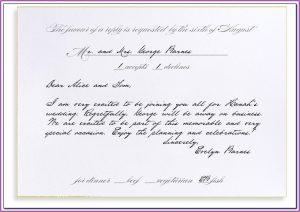 The favour of a reply is requested by the sixth of August
Mr. and Mrs. George Barnes
1 accepts 1 declines
Dear Alice and Tom,
I am very excited to be joining you all for Hanah's
wedding. Regretfully, George will be away on business.
We are excited to be part of this memorable and very
special occasion. Enjoy the planning and celebrations!
Sincerely,
Evelyn Barnes
for dinner beef vegetarian fish